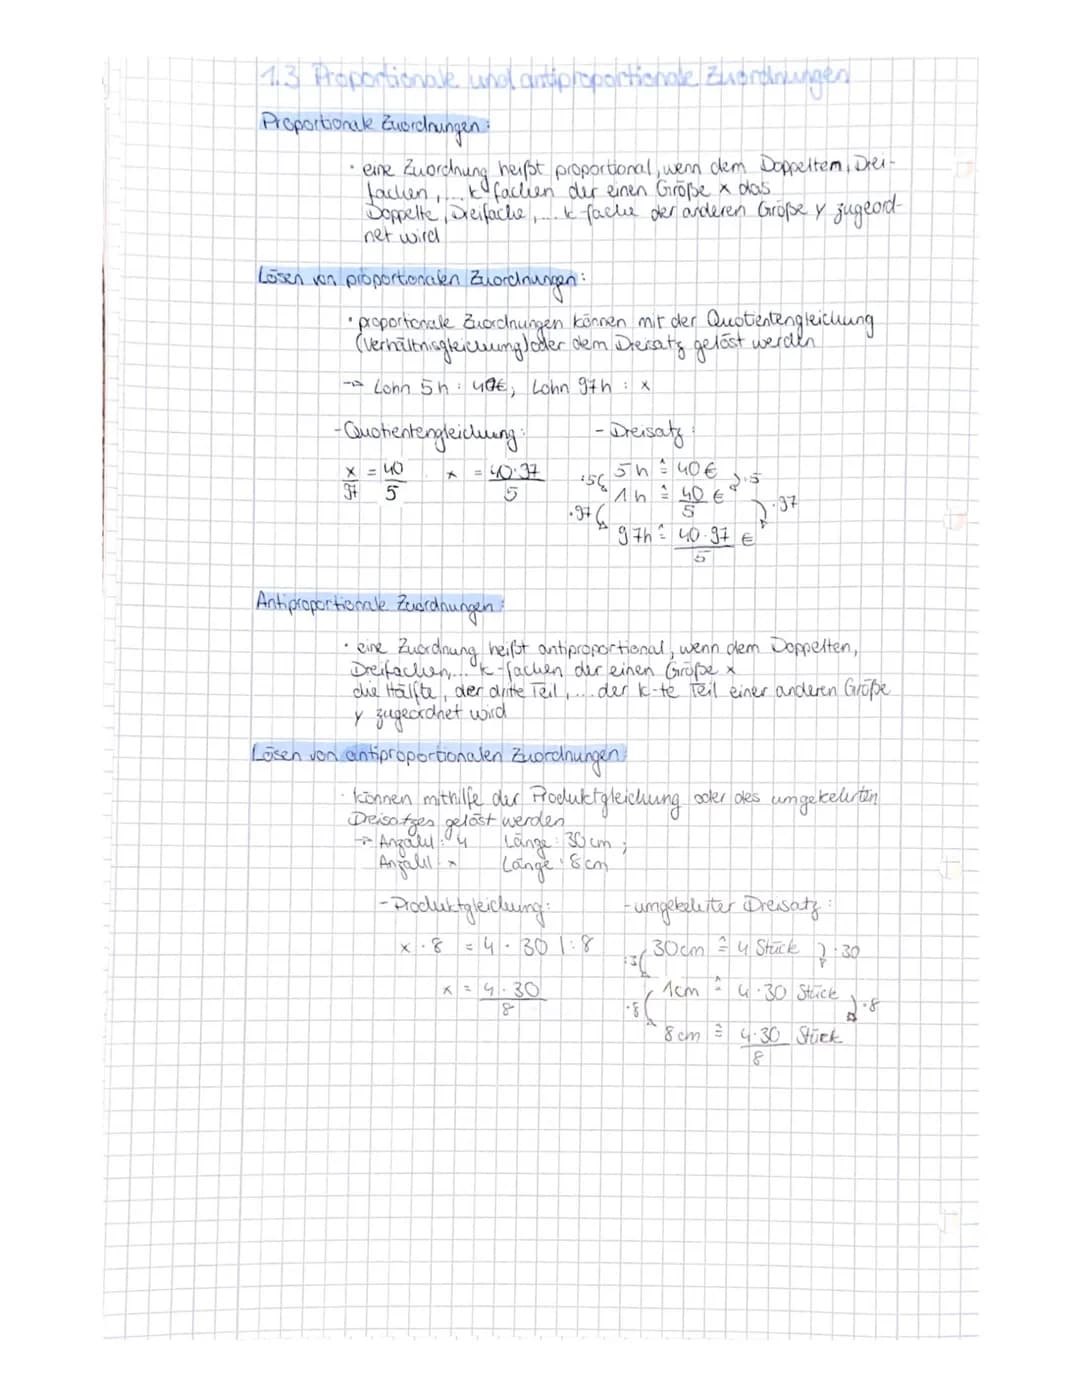 1.3 Proportionale und antiproportionale Zuordnungen
Proportionale Zuordnungen:
· eine Zuordnung heißt proportional, wenn dem Doppeltem, Drei-
fachen, ... k-fachen der einen Größe x das
Doppelte, Dreifache, ... k-fache der anderen Größe y zugeord-
net wird
Lösen von proportionalen Zuordnungen:
· proportionale Zuordnungen können mit der Quotientengleichung
(Verhältnisgleichung) oder dem Dreisatz gelöst werden
→ Lohn 5h: 40€; Lohn 97h: x
- Quotientengleichung: - Dreisatz:
x/97 = 40/5 x = 40·97/5
:5 5h ≙ 40€ :5
1h ≙ 40/5 €
·97 ·97
97h ≙ 40·97/5 €
Antiproportionale Zuordnungen:
· eine Zuordnung heißt antiproportional, wenn dem Doppelten,
Dreifachen, ... k-fachen der einen Größe x
die Hälfte, der dritte Teil, ... der k-te Teil einer anderen Größe
y zugeordnet wird
Lösen von antiproportionalen Zuordnungen:
· können mithilfe der Produktgleichung oder des umgekehrten
Dreisatzes gelöst werden
→ Anzahl: 4 Länge: 30cm;
Anzahl: x Länge: 8cm
- Produktgleichung: - umgekehrter Dreisatz:
x · 8 = 4 · 30 |:8
30cm ≙ 4 Stück ·30
x = 4·30/8
1cm ≙ 4·30 Stück
·8 :8
8cm ≙ 4·30/8 Stück